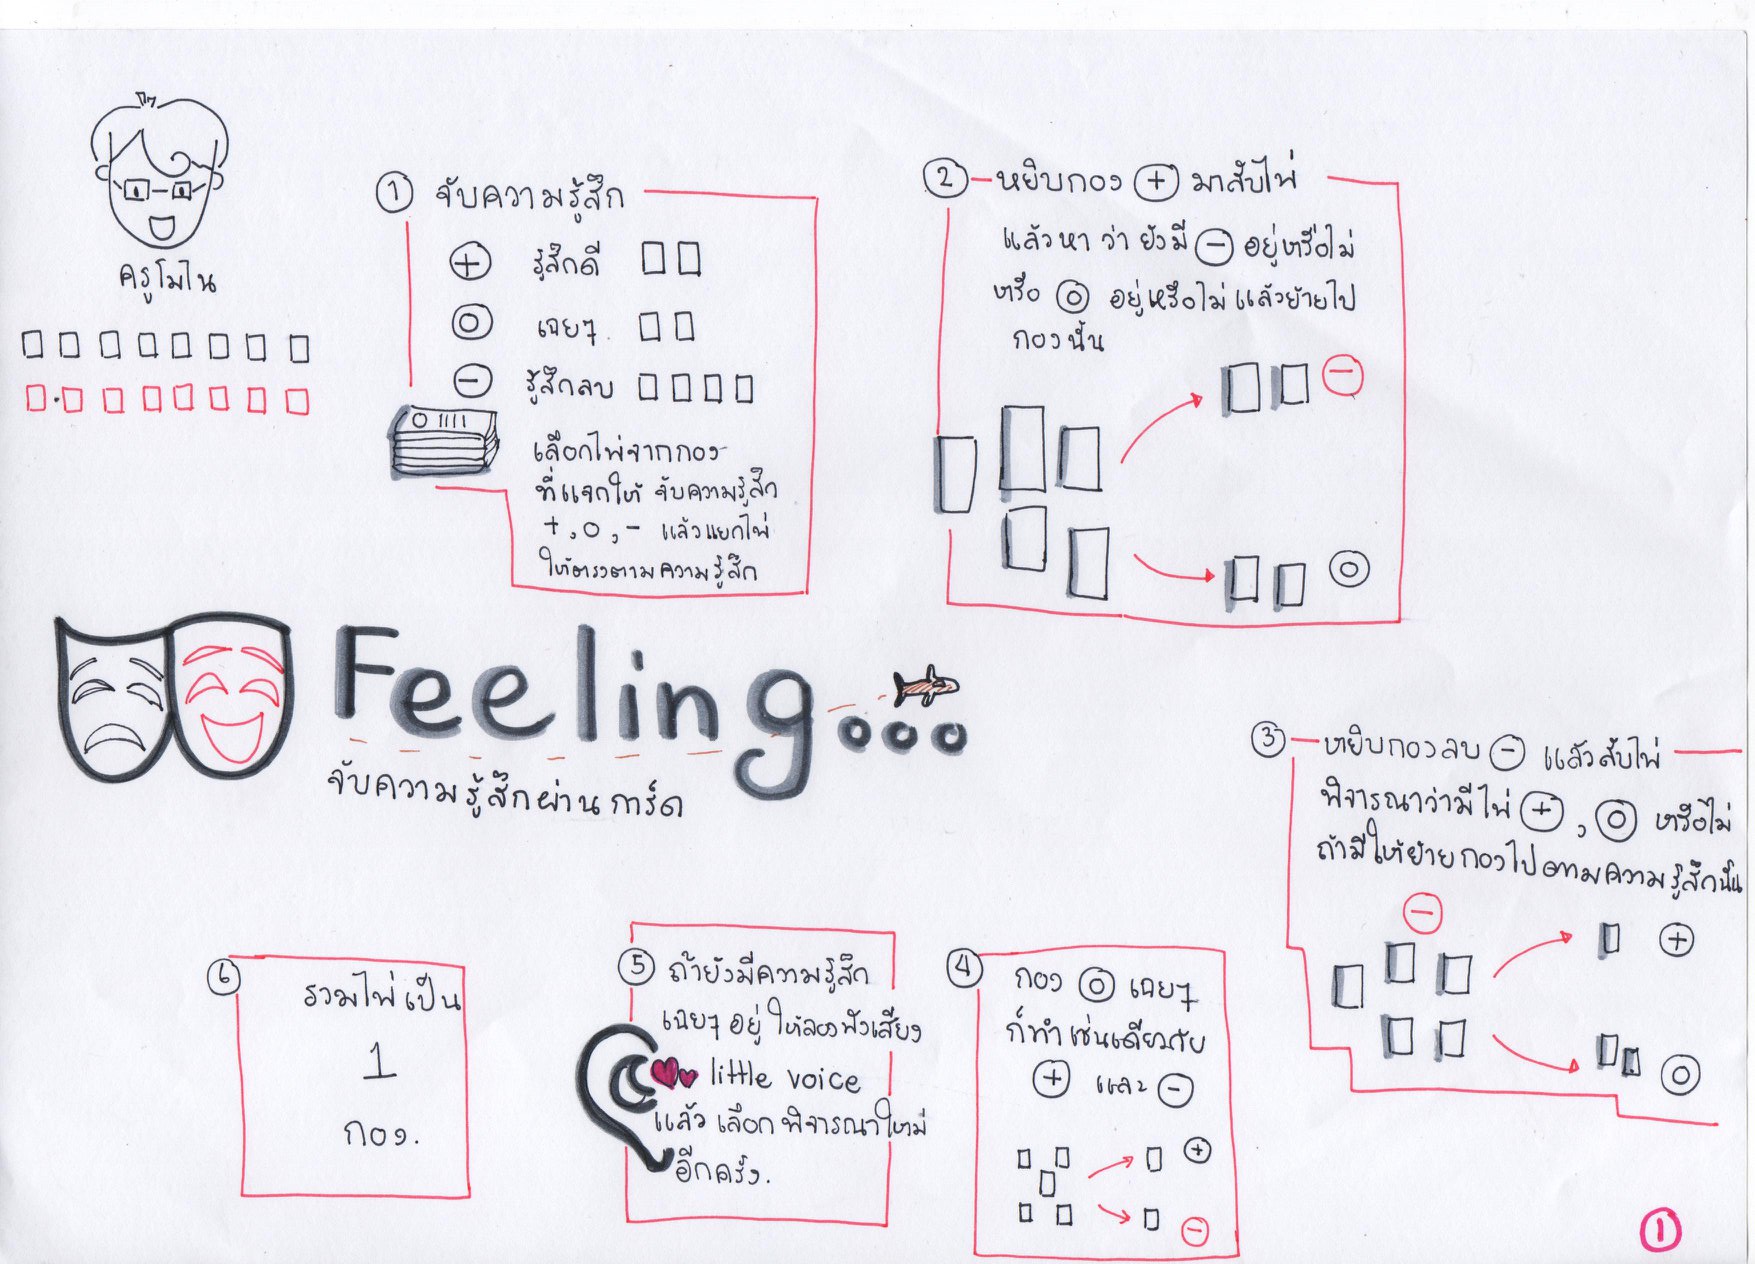 ครูโมไน
① จับความรู้สึก
+ รู้สึกดี
0 เฉยๆ
- รู้สึกลบ
เลือกไพ่จากกอง
ที่แจกให้ จับความรู้สึก
+, 0, - แล้วแยกไพ่
ให้ตรงตามความรู้สึก
② หยิบกอง + มาสับไพ่
แล้วหา ว่า ยังมี - อยู่หรือไม่
หรือ 0 อยู่หรือไม่ แล้วย้ายไป
กองนั้น
-
0
Feeling...
จับความรู้สึกผ่านการ์ด
③ หยิบกองลบ - แล้วสับไพ่
พิจารณาว่ามีไพ่ +, 0 หรือไม่
ถ้ามีให้ย้ายกองไปตามความรู้สึกนั้น
-
+
0
④ กอง 0 เฉยๆ
ก็ทำเช่นเดียวกับ
+ และ -
+
-
⑤ ถ้ายังมีความรู้สึก
เฉยๆ อยู่ ให้ลองฟังเสียง
little voice
แล้ว เลือก พิจารณาใหม่
อีกครั้ง.
⑥ รวมไพ่เป็น
1
กอง.
①